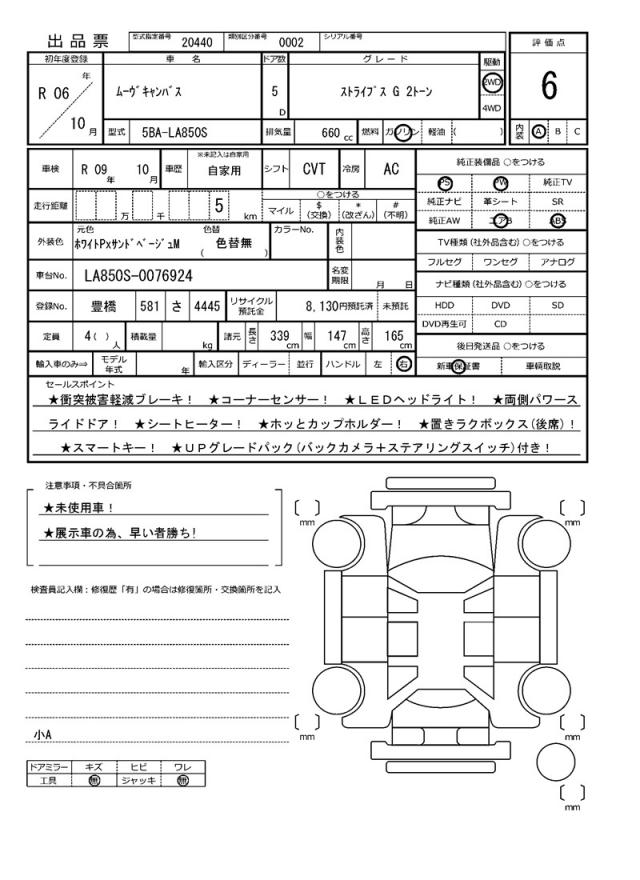 出品票 型式指定番号 20440 類別区分番号 0002 シリアル番号
評価点
6
内装 A B C
初年度登録 車名 ドア数 グレード 駆動
R 06 年 10 月 ﾑｰｳﾞｷｬﾝﾊﾞｽ 5 D ｽﾄﾗｲﾌﾟｽ G 2ﾄｰﾝ 2WD
4WD
型式 5BA-LA850S 排気量 660 cc 燃料 ガソリン 軽油 ( )
車検 R 09 年 10 月 車歴 ※未記入は自家用 自家用 シフト CVT 冷房 AC
走行距離 万 千 5 km ○をつける
マイル $(交換) *(改ざん) #(不明)
外装色 元色 ﾎﾜｲﾄPxｻﾝﾄﾞﾍﾞｰｼﾞｭM 色替 ( 色替無 ) カラーNo. 内装色
車台No. LA850S-0076924 名変期限 月 日
登録No. 豊橋 581 さ 4445 リサイクル預託金 8,130円預託済 未預託
定員 4( )人 積載量 kg 諸元 長さ 339 cm 幅 147 cm 高さ 165 cm
輸入車のみ⇒ モデル年式 年 輸入区分 ディーラー 並行 ハンドル 左 右
純正装備品 ○をつける
PS PW 純正TV
純正ナビ 革シート SR
純正AW エアB ABS
TV種類(社外品含む) ○をつける
フルセグ ワンセグ アナログ
ナビ種類(社外品含む) ○をつける
HDD DVD SD
DVD再生可 CD
後日発送品 ○をつける
新車保証書 車輌取説
セールスポイント
★衝突被害軽減ブレーキ! ★コーナーセンサー! ★LEDヘッドライト! ★両側パワース
ライドドア! ★シートヒーター! ★ホッとカップホルダー! ★置きラクボックス(後席)!
★スマートキー! ★UPグレードパック(バックカメラ+ステアリングスイッチ)付き!
注意事項・不具合箇所
★未使用車!
★展示車の為、早い者勝ち!
検査員記入欄:修復歴「有」の場合は修復箇所・交換箇所を記入
小A
ドアミラー キズ ヒビ ワレ
工具 無 ジャッキ 無
[ ] mm
[ ] mm
[ ] mm
[ ] mm
[ ] mm